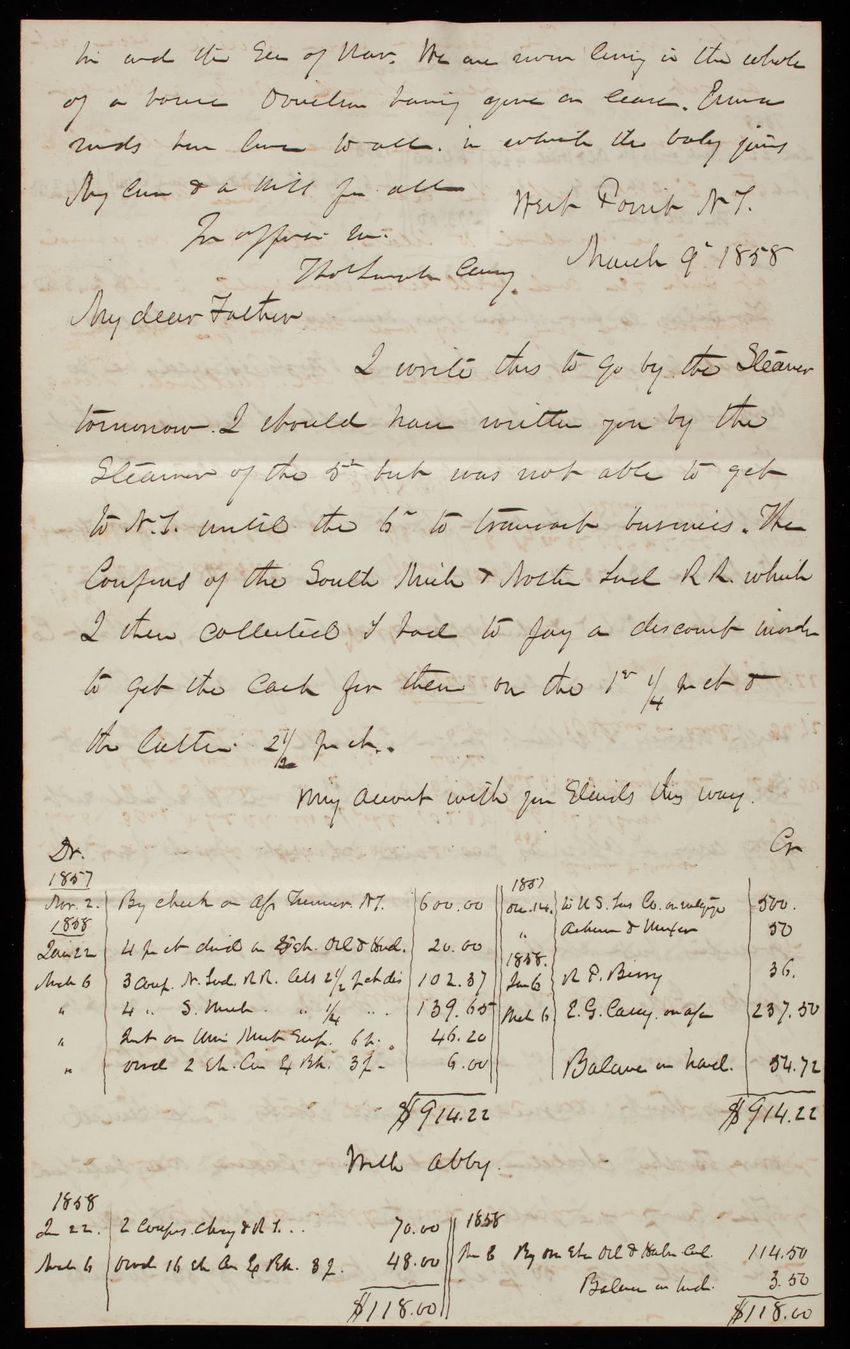 him and the Sec of War. We are now living in the whole
of a house Donelson having gone on leave. Emma
sends her love to all. in which the baby joins
My love & a kiss for all
Yr affect. son.
Thos Lincoln Casey.
West Point N.Y.
March 9th 1858
My dear Father
I write this to go by the Steamer
tomorrow. I should have written you by the
Steamer of the 5th but was not able to get
to N.Y. until the 6th to transact business. The
Coupons of the South Mich & North Ind R.R. which
I then collected I had to pay a discount in order
to get the Cash for them on the 1st 1/4 pr ct &
the latter 2 1/2 pr ct.
My account with you Stands this way.
Dr. Cr
1857
Nov. 2. By check on Ass Treasurer. N.Y. 600.00
1858
Jan 22 4 pr ct divid on Sh. Del & Hud. 20.00
Mch 6 3 Coup. N. Ind. R.R. less 2 1/2 pr ct dis 102.37
" 4 " S. Mich. " 1/4 " .. 139.65
" Int on 6 p. 46.20
" Divd 2 Sh. Am Ex Bk. 3 p- 6.00
$914.22
1857
Dec. 14. to U.S. Ins Co. on 500.
" 50
1858.
Jan 6 R. P. Berry 36.
Mch 6 E. G. Casey. on 237.50
Balance on hand. 54.72
$914.22
With Abby.
1858
Jan 22. 2 Coups. Chicg & R I... 70.00
Mch 6 Divd 16 Sh Am Ex Bk. 3 p. 48.00
$118.00
1858
6 By one Sh Del & Huds Cnl. 114.50
Balance on hnd. 3.50
$118.00